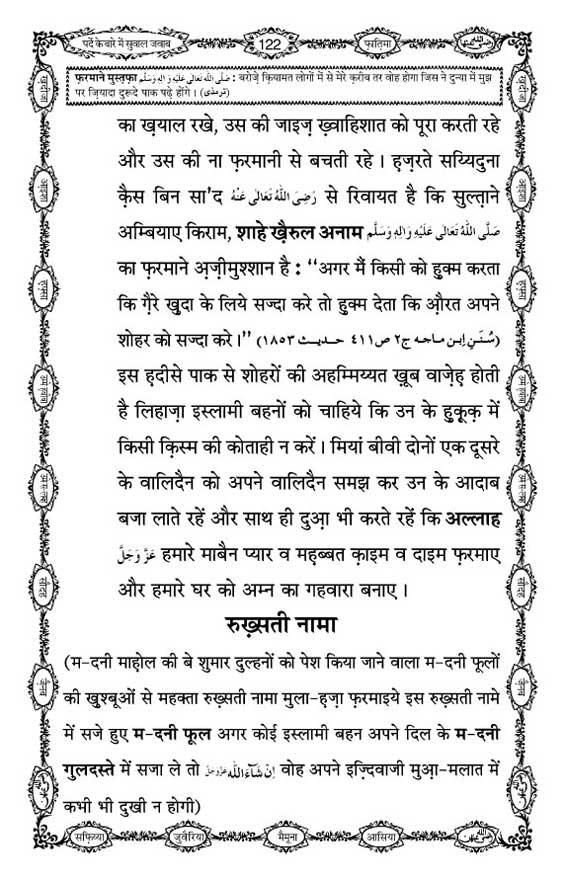 पर्दे के बारे में सुवाल जवाब
122
फ़ातिमा
फ़रमाने मुस्तफ़ा صَلَّى اللهُ تَعَالٰى عَلَيْهِ وَاٰلِهٖ وَسَلَّم : बरोज़े क़ियामत लोगों में से मेरे क़रीब तर वोह होगा जिस ने दुन्या में मुझ
पर ज़ियादा दुरूदे पाक पढ़े होंगे । (ترمذی)
का ख़याल रखे, उस की जाइज़ ख़्वाहिशात को पूरा करती रहे
और उस की ना फ़रमानी से बचती रहे । हज़रते सय्यिदुना
क़ैस बिन सा'द رَضِىَ اللهُ تَعَالٰى عَنْهُ से रिवायत है कि सुल्ताने
अम्बियाए किराम, शाहे ख़ैरुल अनाम صَلَّى اللهُ تَعَالٰى عَلَيْهِ وَاٰلِهٖ وَسَلَّم
का फ़रमाने अज़ीमुश्शान है : ‘‘अगर मैं किसी को हुक्म करता
कि ग़ैरे ख़ुदा के लिये सज्दा करे तो हुक्म देता कि औरत अपने
शोहर को सज्दा करे ।’’ (سُنَنِ اِبن ماجه ج٢ ص٤١١ حديث ١٨٥٣)
इस हदीसे पाक से शोहरों की अहम्मिय्यत ख़ूब वाज़ेह होती
है लिहाज़ा इस्लामी बहनों को चाहिये कि उन के हुक़ूक़ में
किसी क़िस्म की कोताही न करें । मियां बीवी दोनों एक दूसरे
के वालिदैन को अपने वालिदैन समझ कर उन के आदाब
बजा लाते रहें और साथ ही दुआ भी करते रहें कि अल्लाह
عَزَّوَجَلَّ हमारे माबैन प्यार व महब्बत क़ाइम व दाइम फ़रमाए
और हमारे घर को अम्न का गहवारा बनाए ।
रुख़्सती नामा
(म-दनी माहोल की बे शुमार दुल्हनों को पेश किया जाने वाला म-दनी फूलों
की ख़ुश्बूओं से महक्ता रुख़्सती नामा मुला-हज़ा फ़रमाइये इस रुख़्सती नामे
में सजे हुए म-दनी फूल अगर कोई इस्लामी बहन अपने दिल के म-दनी
गुलदस्ते में सजा ले तो اِنْ شَآءَاللّٰه عَزَّوَجَلَّ वोह अपने इज़्दिवाजी मुआ-मलात में
कभी भी दुखी न होगी)
सफ़िय्या
जुवैरिया
मैमूना
आसिया